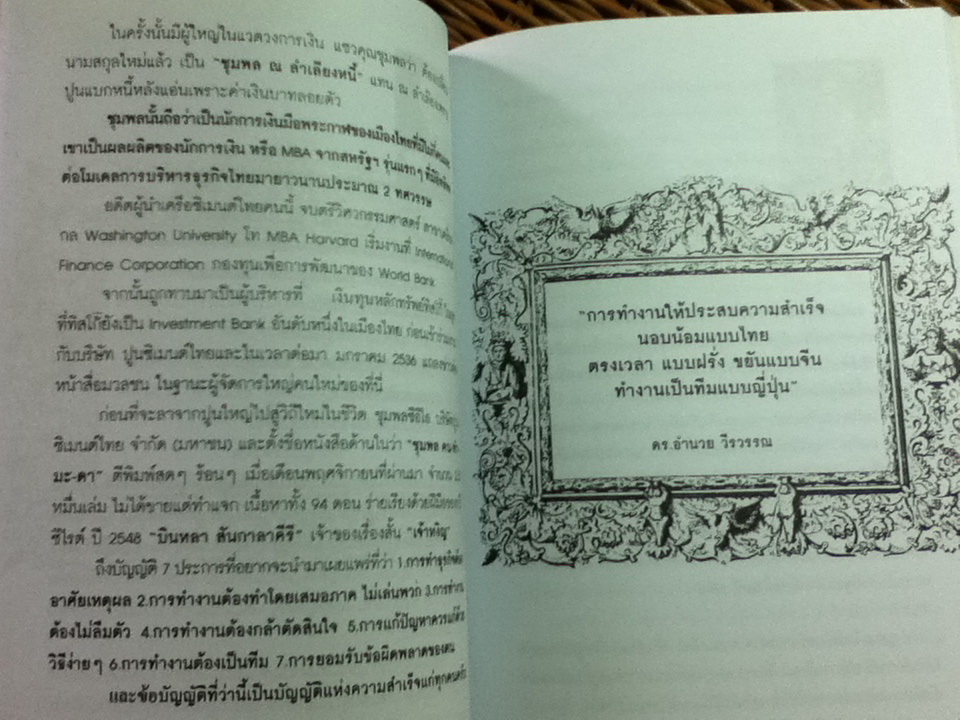 ในครั้งนั้นมีผู้ใหญ่ในแวดวงการเงิน แซวคุณชุมพลว่า
นามสกุลใหม่แล้ว เป็น "ชุมพล ณ ลำเลียงหนี้" แทน ณ ลำเลียง
ปูนแบกหนี้หลังแอ่นเพราะค่าเงินบาทลอยตัว
ชุมพลนั้นถือว่าเป็นนักการเงินมือพระกาฬของเมืองไทย
เขาเป็นผลผลิตของนักการเงิน หรือ MBA จากสหรัฐฯ รุ่นแรกๆ
ต่อโมเดลการบริหารธุรกิจไทยมายาวนานประมาณ 2 ทศวรรษ
อดีตผู้นำเครือซิเมนต์ไทยคนนี้ จบตรีวิศวกรรมศาสตร์
กล Washington University โท MBA Harvard เริ่มงานที่ International
Finance Corporation กองทุนเพื่อการพัฒนาของ World Bank
จากนั้นถูกทาบมาเป็นผู้บริหารที่ เงินทุนหลักทรัพย์
ที่ทิสโก้ยังเป็น Investment Bank อันดับหนึ่งในเมืองไทย
กับบริษัท ปูนซิเมนต์ไทยและในเวลาต่อมา มกราคม 2536
หน้าสื่อมวลชน ในฐานะผู้จัดการใหญ่คนใหม่ของที่นี่
ก่อนที่จะลาจากปูนใหญ่ไปสู่วิถีใหม่ในชีวิต ชุมพลซีอีโอ
ซิเมนต์ไทย จำกัด (มหาชน) และตั้งชื่อหนังสือด้านในว่า "ชุมพล
มะ-ดา" ตีพิมพ์สดๆ ร้อนๆ เมื่อเดือนพฤศจิกายนที่ผ่านมา
หมื่นเล่ม ไม่ได้ขายแต่ทำแจก เนื้อหาทั้ง 94 ตอน
ซีไรต์ ปี 2548 "บินหลา สันกาลาคีรี" เจ้าของเรื่องสั้น "เจ้าหงิญ"
ถึงบัญญัติ 7 ประการที่อยากจะนำมาเผยแพร่ที่ว่า
อาศัยเหตุผล 2.การทำงานต้องทำโดยเสมอภาค ไม่เล่นพวก
ต้องไม่ลืมตัว 4.การทำงานต้องกล้าตัดสินใจ
วิธีง่ายๆ 6.การทำงานต้องเป็นทีม 7.การยอมรับข้อผิดพลาดของตน
และข้อบัญญัติที่ว่านี้เป็นบัญญัติแห่งความสำเร็จแก่ทุกคน
"การทำงานให้ประสบความสำเร็จ
นอบน้อมแบบไทย
ตรงเวลา แบบฝรั่ง ขยันแบบจีน
ทำงานเป็นทีมแบบญี่ปุ่น"
ดร.อำนวย วีรวรรณ